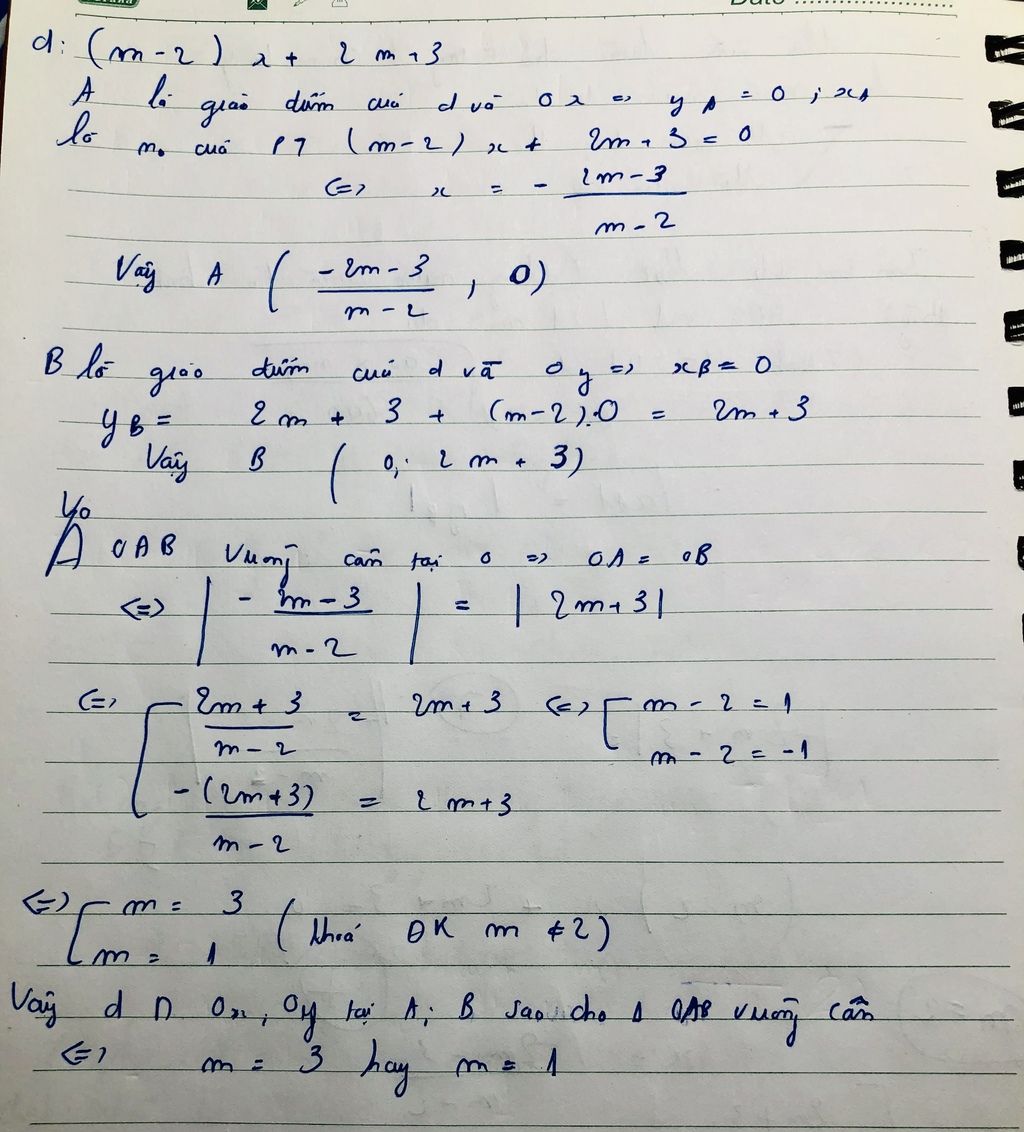 Date ........................
d: (m-2) x + 2m+3
A là giao điểm của d và Ox => y_A = 0 ; x_A
là no của PT (m-2) x + 2m+3 = 0
<=> x = - \frac{2m-3}{m-2}
Vậy A ( \frac{-2m-3}{m-2} , 0)
B là giao điểm của d và Oy => x_B = 0
y_B = 2m + 3 + (m-2).0 = 2m+3
Vậy B ( 0; 2m + 3)
Δ OAB vuông cân tại O => OA = OB
<=> | - \frac{2m-3}{m-2} | = | 2m+3|
<=> [ \frac{2m+3}{m-2} = 2m+3 <=> [ m - 2 = 1
m - 2 = -1
\frac{-(2m+3)}{m-2} = 2m+3
<=> [ m = 3
m = 1 (thoả ĐK m ≠ 2)
Vậy d ∩ Ox, Oy tại A; B sao cho Δ OAB vuông cân
<=> m = 3 hay m = 1